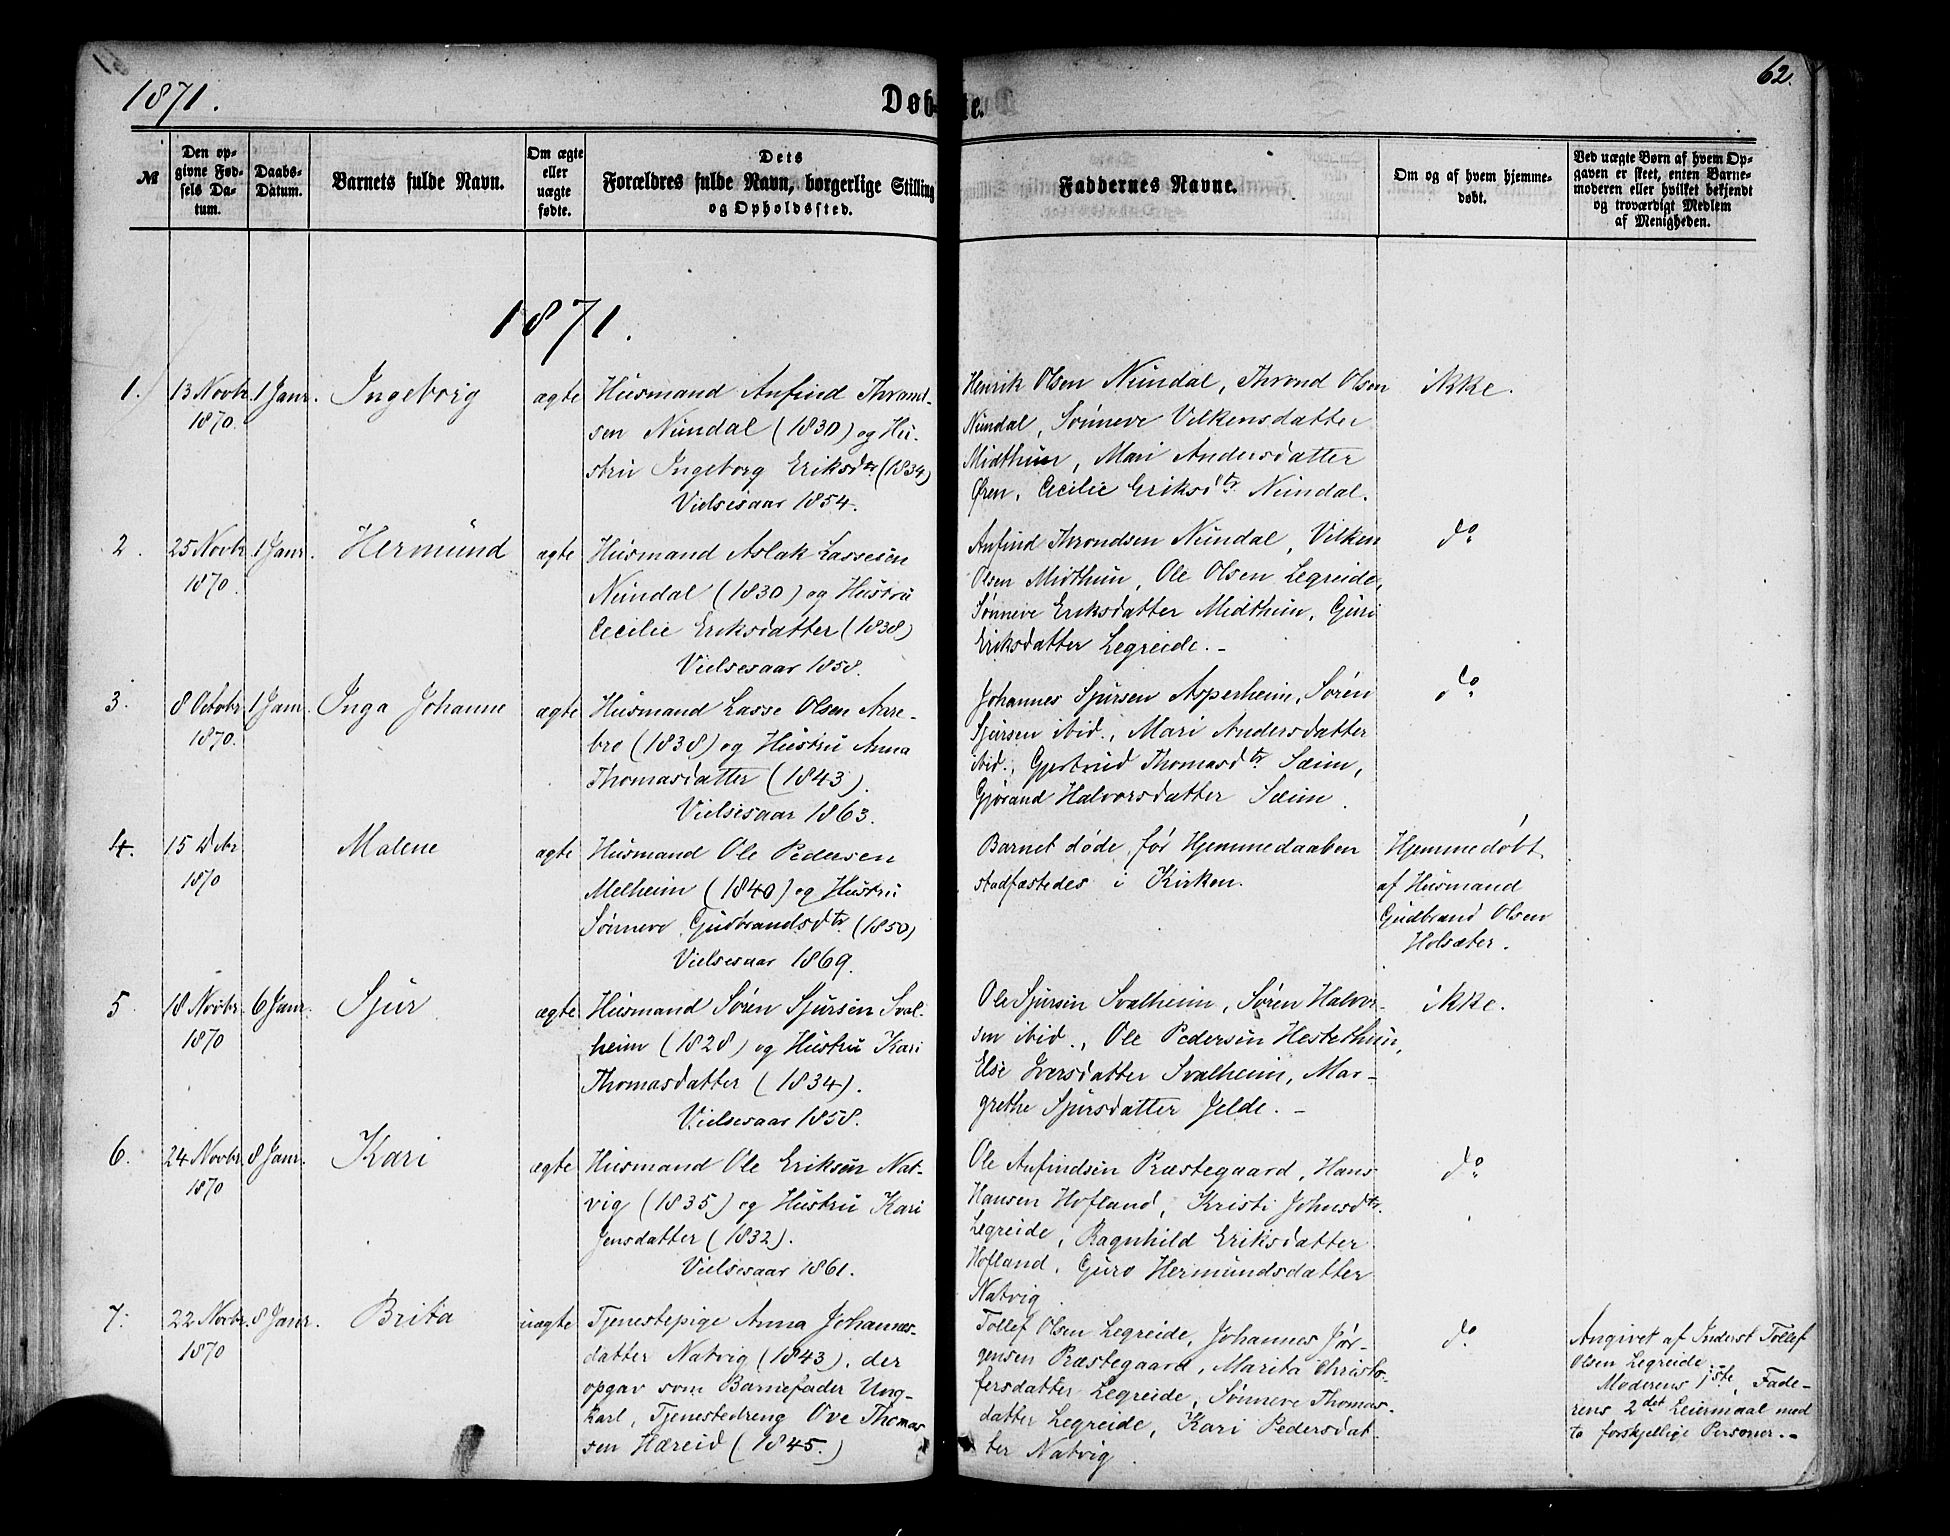 1871.
Døb-
te.
62.
№
Den op-
givne Fød-
sels Da-
tum.
Daabs-
Datum.
Barnets fulde Navn.
Om ægte
eller
uægte
fødte.
Dets
Forældres fulde Navn, borgerlige Stilling
og Opholdssted.
Faddernes Navne.
Om og af hvem hjemme-
døbt.
Ved uægte Børn af hvem Op-
gaven er skeet, enten Barne-
moderen eller hvilket bekjendt
og troværdigt Medlem
af Menigheden.
1871.
1.
13 Novbr
1870.
1 Janr.
Ingeborg
ægte
Husmand Anfind Thrond-
sen Nundal (1830) og Hu-
stru Ingeborg Eriksdr. (1834)
Vielsesaar 1854.
Henrik Olsen Nundal, Thrond Olsen
Nundal, Sønneve Vilkensdatter
Midthun, Mari Andersdatter
Øren, Cecilie Eriksdtr Nundal.
ikke.
2.
25 Novbr
1870.
1 Janr.
Hermund
ægte
Husmand Aslak Lassesen
Nundal (1830) og Hustru
Cecilie Eriksdatter (1838)
Vielsesaar 1858.
Anfind Throndsen Nundal, Vilken
Olsen Midthun, Ole Olsen Legreide,
Sønneve Eriksdatter Midthun, Guri
Eriksdatter Legreide. -
do
3.
8 Octobr
1870.
1 Janr.
Inga Johanne
ægte
Husmand Lasse Olsen Aare-
bro (1838) og Hustru Anna
Thomasdatter (1843).
Vielsesaar 1863.
Johannes Sjursen Asperheim, Søren
Sjursen ibid., Mari Andersdatter
ibid., Gjertrud Thomasdtr Sæim,
Gjørand Halvorsdatter Sæim.
do
4.
15 Dbr
1870
Malene
ægte
Husmand Ole Pedersen
Melheim (1840) og Hustru
Sønneve Gudbrandsdtr (1850)
Vielsesaar 1869.
Barnet døde, før Hjemmedaaben
stadfæstedes i Kirken.
Hjemmedøbt
af Husmand
Gudbrand Olsen
Holsæter.
5.
18 Novbr.
1870
6 Janr.
Sjur
ægte
Husmand Søren Sjursen Sval-
heim (1828) og Hustru Kari
Thomasdatter (1834).
Vielsesaar 1858.
Ole Sjursen Svalheim, Søren Halvor-
sen ibid., Ole Pedersen Hestethun,
Else Iversdatter Svalheim, Mar-
grethe Sjursdatter Jelde. -
ikke.
6.
24 Novbr.
1870
8 Janr.
Kari
ægte
Husmand Ole Eriksen Nat-
vig (1835) og Hustru Kari
Jensdatter (1832).
Vielsesaar 1861.
Ole Anfindsen Præstegaard, Hans
Hansen Hofland, Kristi Johnsdtr.
Legreide, Ragnhild Eriksdatter
Hofland, Guro Hermundsdatter
Natvig.
do
7.
22 Novbr.
1870
8 Janr.
Brita
uægte
Tjenestepige Anna Johannes-
datter Natvig (1843). der
opgav som Barnefader Ung-
karl, Tjenestedreng Ove Thomas-
sen Hæreid (1845.)
Tollef Olsen Legreide, Johannes Jør-
gensen Præstegaard, Marita Christo-
fersdatter Legreide, Sønneve Thomas-
datter Legreide, Kari Pedersdat-
ter Natvig.
do
Angivet af Inderst Tollef
Olsen Legreide
Moderens 1ste, Fade-
rens 2det Leiermaal med
to forskjellige Personer. -